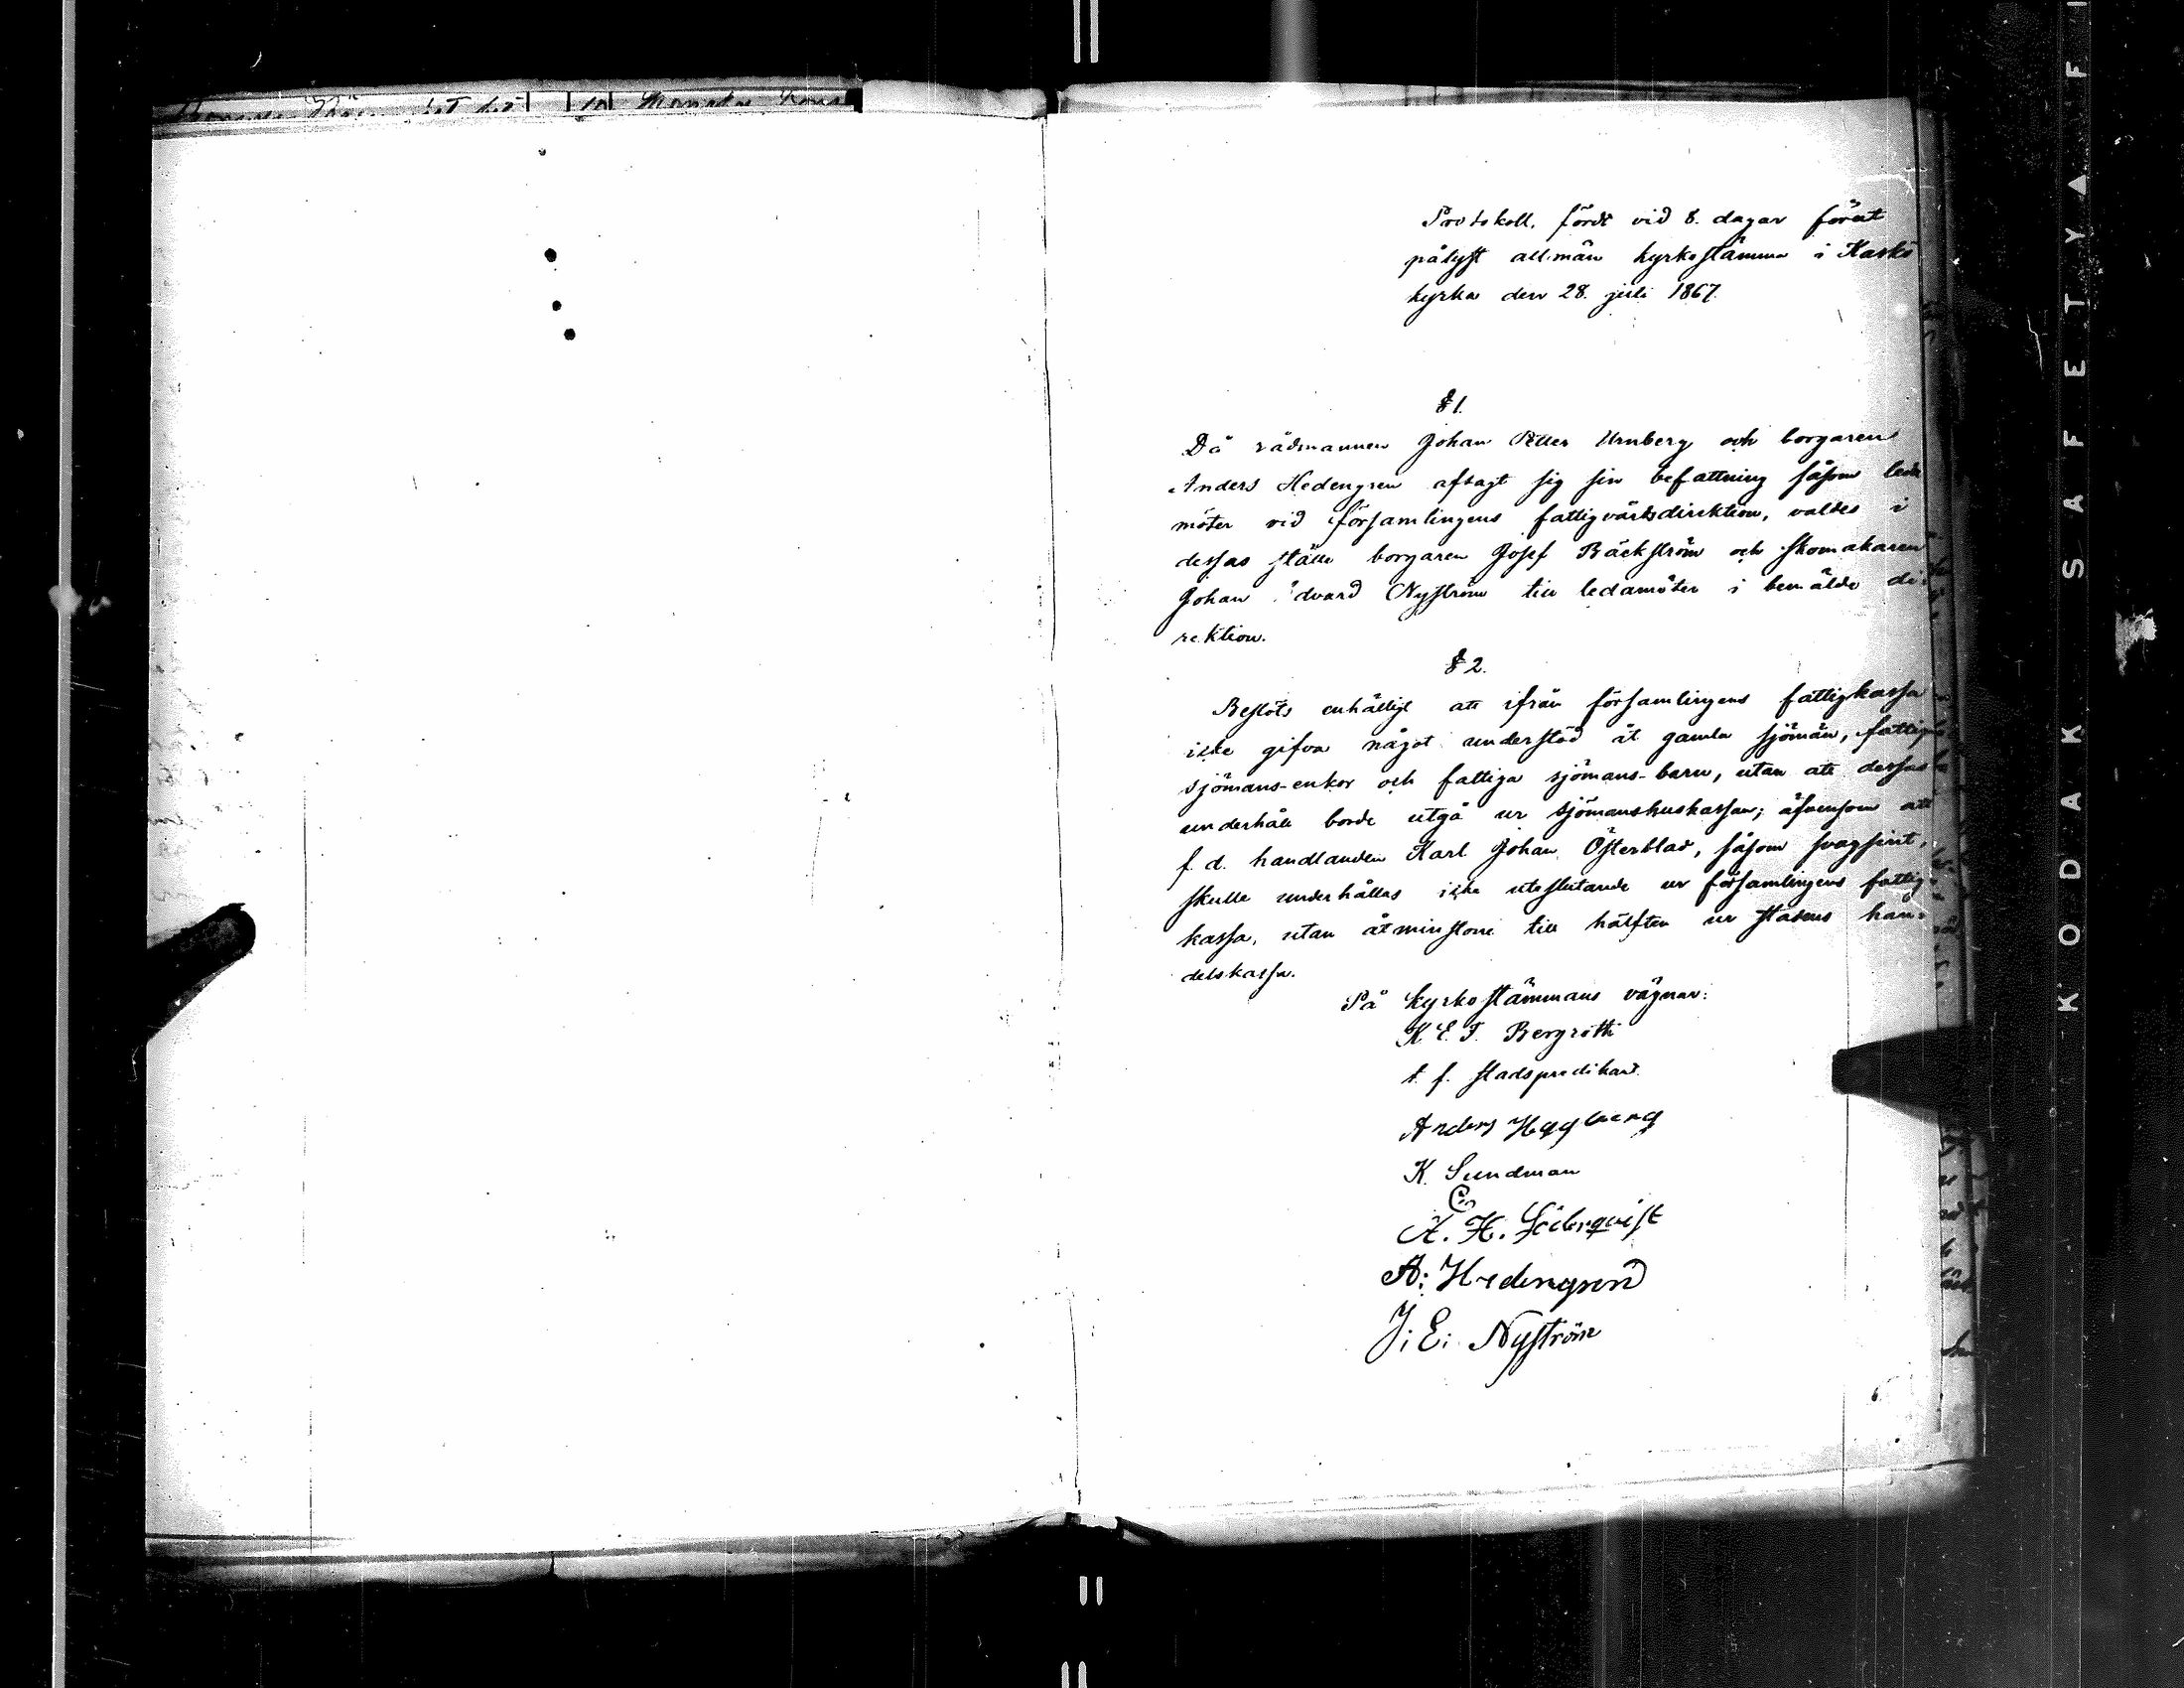 Protokoll, fördt vid 8. dagar förut
pålyst allmän kyrkostämma i Kaskö
kyrka den 28. juli 1867.
§ 1.
Då rådmannen Johan Petter Urnberg och borgaren
Anders Hedengren afsagt sig sin befattning såsom leda
möter vid församlingens fattigvårdsdirektion, valdes i
dessas ställe borgaren Josef Bäckström och skomakaren
Johan Edvard Nyström till ledamöter i bemälde di
rektion.
§ 2.
Beslöts enhälligt att ifrån församlingens fattigkassa
icke gifva något understöd åt gamla sjömän, fattiga
sjömans-enkor och fattiga sjömans-barn, utan att dessas
underhåll borde utgå ur sjömanshuskassan; äfvensom att
f. d. handlanden Karl Johan Österblad, såsom svagsint,
skulle underhållas icke uteslutande ur församlingens fattig-
kassa, utan åtminstone till hälften ur stadens han-
delskassa.
På kyrkostämmans vägnar:
K. E. F. Bergroth
t. f. stadspredikant.
Anders Hggberg
K. Sundman
A. H. Söderqvist
A: Hedengren
J: E: Nyström
KODAK SAFETY F